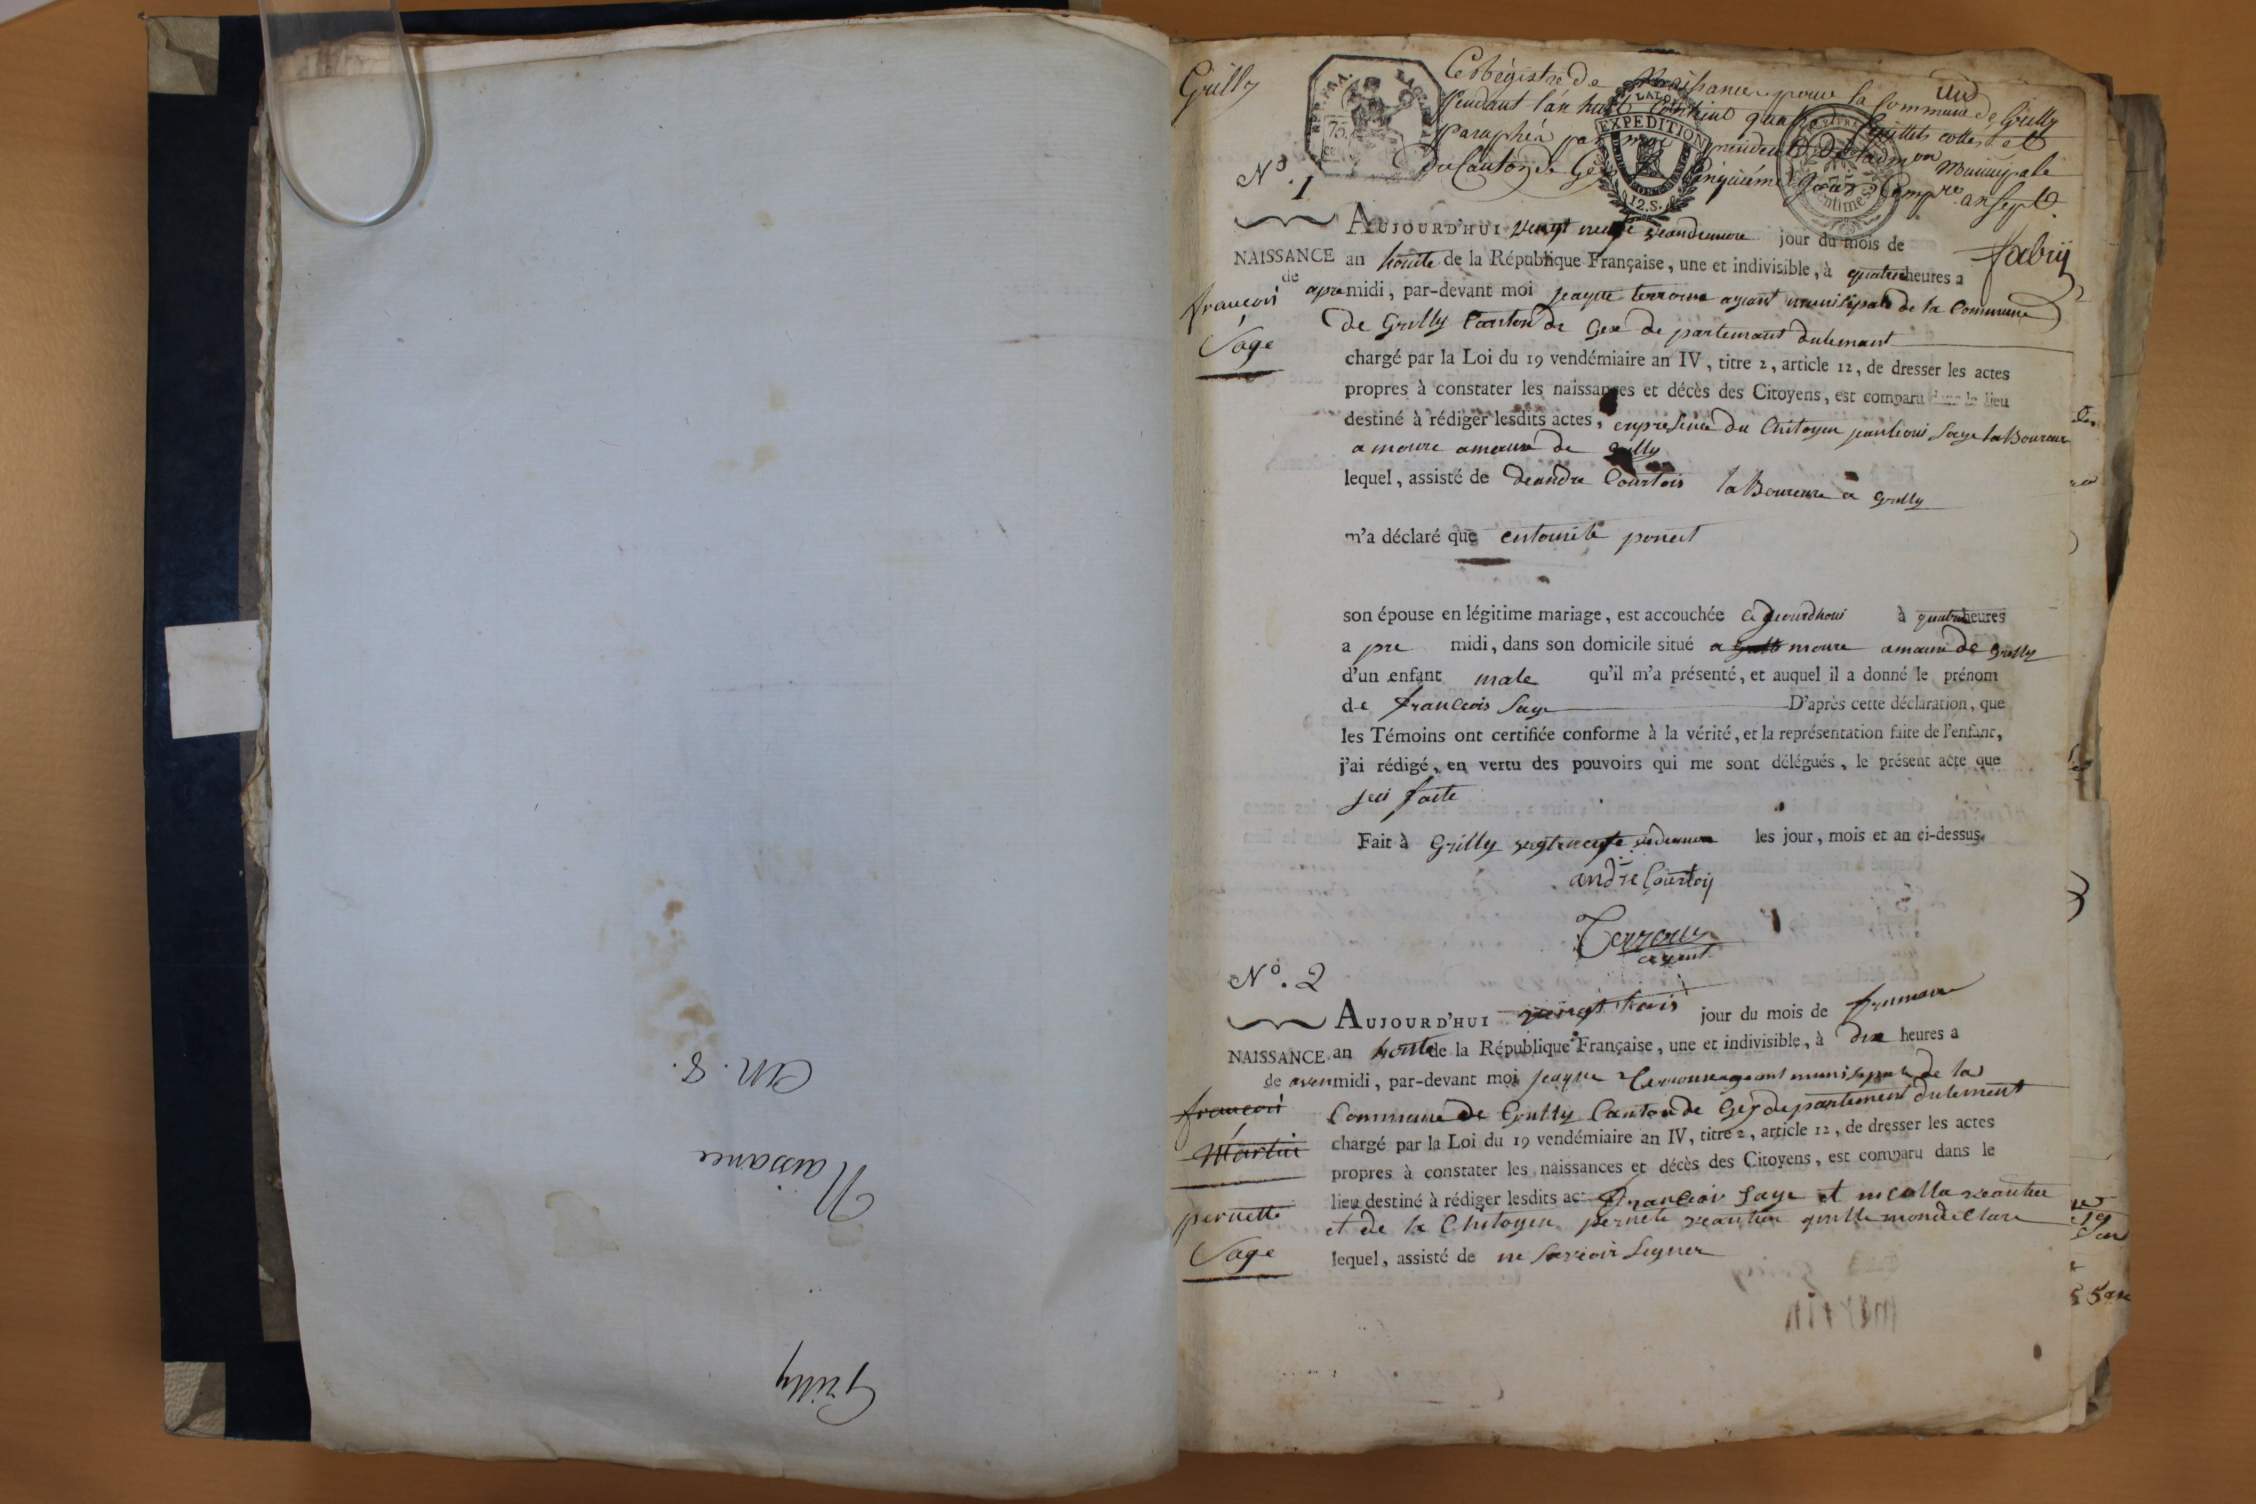 Grilly
Naissance
an. 8.
Grilly
un
Ce Régistre de Naissance pour la Commune de Grilly
Pendant l'an huit Contient quatre feuillets cottés et
paraphés par moi president de l'adm.on Municipale
du Canton de Gex Cinquième jour Comp.re an Sept.
fabry
RÉP. FRA.
75
EXPEDITION
12.S.
centimes
N.o 1
AUJOURD'HUI vengt neufe veandemere jour du mois de
NAISSANCE an houite de la République Française, une et indivisible, à quatre heures a
de apre midi, par-devant moi jeaque terroux agant munisipale de la Commune
françois
Sage
de Grilly Canton de Gex de partemant dulemant
chargé par la Loi du 19 vendémiaire an IV, titre 2, article 12, de dresser les actes
propres à constater les naissances et décès des Citoyens, est comparu dans le lieu
destiné à rédiger lesdits actes, enpresence du Chitoyen jeanlioui Sage laBoureur
a moure amaux de Grilly
lequel, assisté de deandre Courtois laBoureure a Grilly
m'a déclaré que entoinete ponest
son épouse en légitime mariage, est accouchée ce jeourdhoui à quatre heures
a pre midi, dans son domicile situé a moure amaux de Grilly
d'un enfant male qu'il m'a présenté, et auquel il a donné le prénom
de francois Sage D'après cette déclaration, que
les Témoins ont certifiée conforme à la vérité, et la représentation faite de l'enfant,
j'ai rédigé, en vertu des pouvoirs qui me sont délégués, le présent acte que
jei faite
Fait à Grilly vegtneufe vedemere les jour, mois et an ci-dessus.
andre Courtois
Terroux
agent
N.o 2
AUJOURD'HUI veingt trois jour du mois de frumaire
NAISSANCE an houite de la République Française, une et indivisible, à dix heures a
de aven midi, par-devant moi jeaque Terroux ageant munisipale de la
françois
Martin
pernette
Sage
Commune de Grilly Canton de Gex departement dulement
chargé par la Loi du 19 vendémiaire an IV, titre 2, article 12, de dresser les actes
propres à constater les naissances et décès des Citoyens, est comparu dans le
lieu destiné à rédiger lesdits ac francois Sage et nicolla veautier
et de la Chitoyen pernete veautier
lequel, assisté de ne Savoir Signer